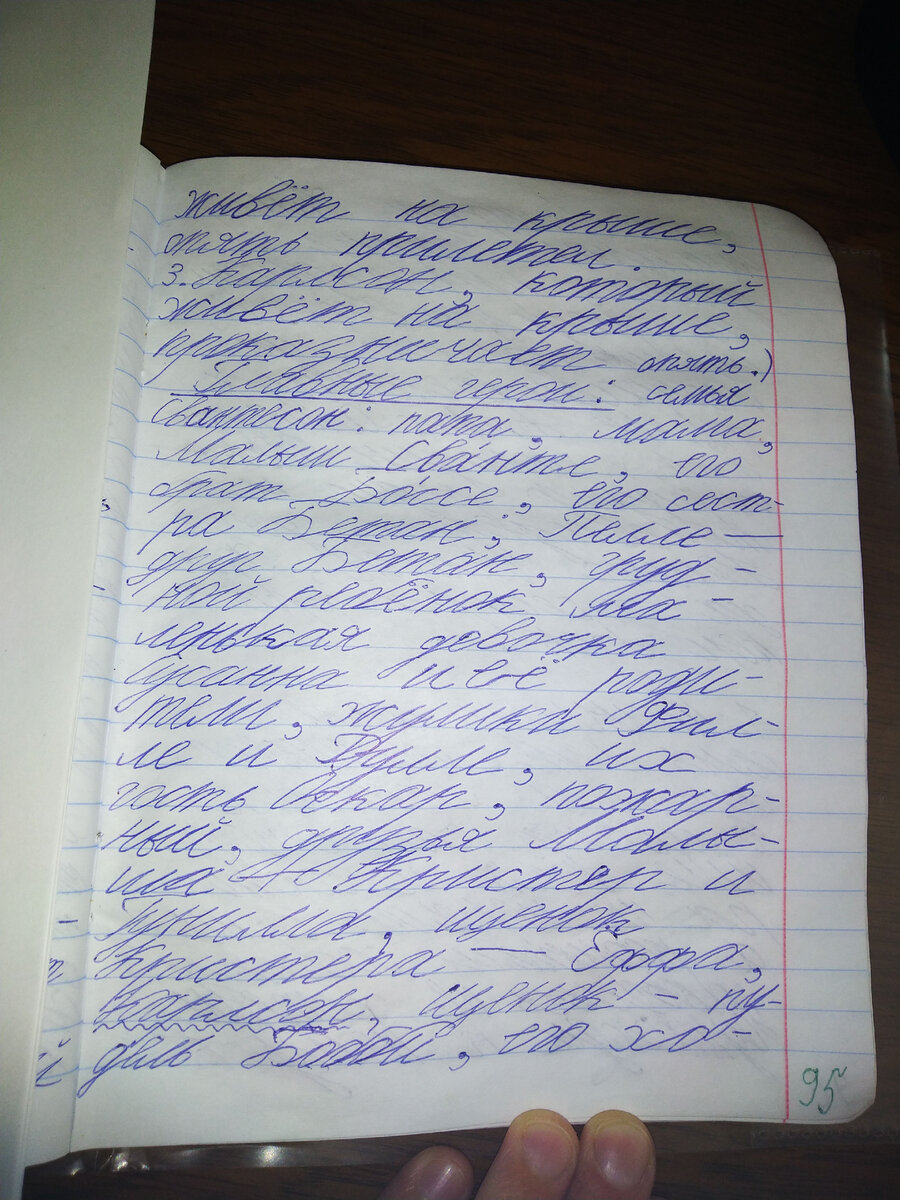 живёт на крыше,
опять прилетел.
3. Карлсон, который
живёт на крыше,
проказничает опять.)
Главные герои: семья
Свантесон: папа, мама,
Малыш Сванте, его
брат Боссе, его сест-
ра Бетан; Пелле —
друг Бетан, груд-
ной ребёнок ма-
ленькая девочка
Сусанна и её роди-
тели, жулики Фил-
ле и Рулле, их
гость Оскар, пожар-
ный, друзья Малы-
ша — Кристер и
Гунилла, щенок
Кристера — Ёффа,
Карлсон, щенок - пу-
дель Бобби, его хо-
95